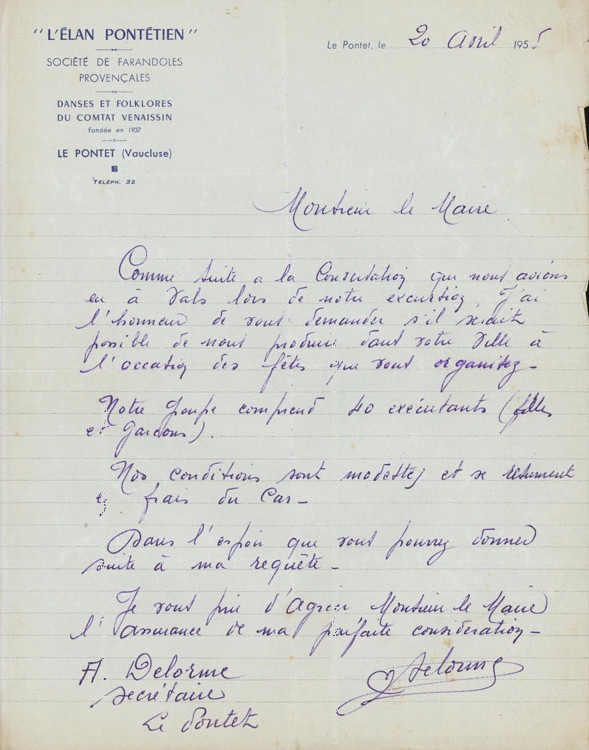 "L'ÉLAN PONTÉTIEN"
SOCIÉTÉ DE FARANDOLES
PROVENÇALES
DANSES ET FOLKLORES
DU COMTAT VENAISSIN
Fondée en 1937
LE PONTET (Vaucluse)
TÉLÉPH. 32
Le Pontet, le 20 Avril 1955
Monsieur le Maire
Comme suite a la Conversation que nous avions
eu à Vals lors de notre excursion, j'ai
l'honneur de vous demander s'il serait
possible de nous produire dans votre Ville à
l'occasion des fêtes que vous organisez -
Notre groupe comprend 40 exécutants (filles
et garçons).
Nos conditions sont modestes et se résument
en frais du Car -
Dans l'espoir que vous pourrez donner
suite à ma requête -
Je vous prie d'Agréer Monsieur le Maire
l'assurance de ma parfaite considération -
A. Delorme
Secrétaire
Le Pontet
Delorme